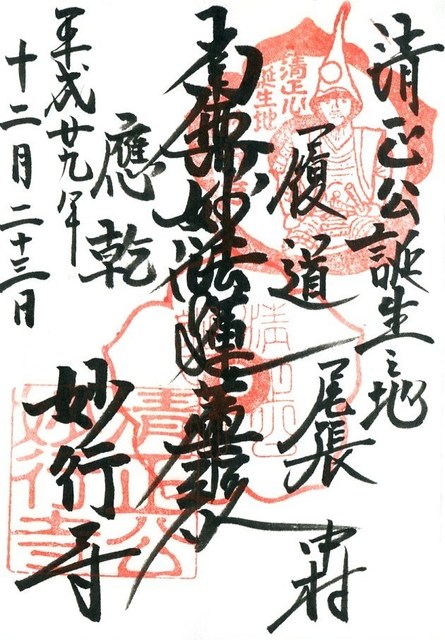 清正公誕生之地
尾張 中村
履道
南無妙法蓮華経
應乾
妙行寺
平成廿九年
十二月二十三日
清正公
誕生地
清正公
妙行寺